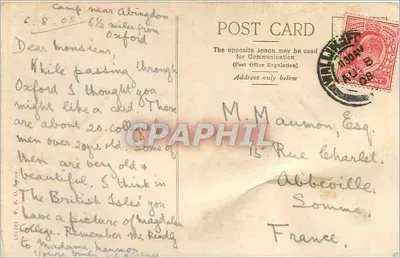 Camp near Abingdon
6.8.08 6½ miles from
Oxford
Dear Monsieur,
While passing through
Oxford I thought you
might like a card. There
are about 20 colleges
men over 20 yrs old. Some of
them are very old &
beautiful. I think in
The British Isles you
have a picture of Magdalen
College. Remember me kindly
to Madame Maumon
Yours truly
POST CARD
The opposite space may be used
for Communication
(Post Office Regulation)
Address only below
AU 8
08
M. Maumon, Esq.
15. Rue Charlet.
Abbeville
Somme.
France.
CPAPHIL